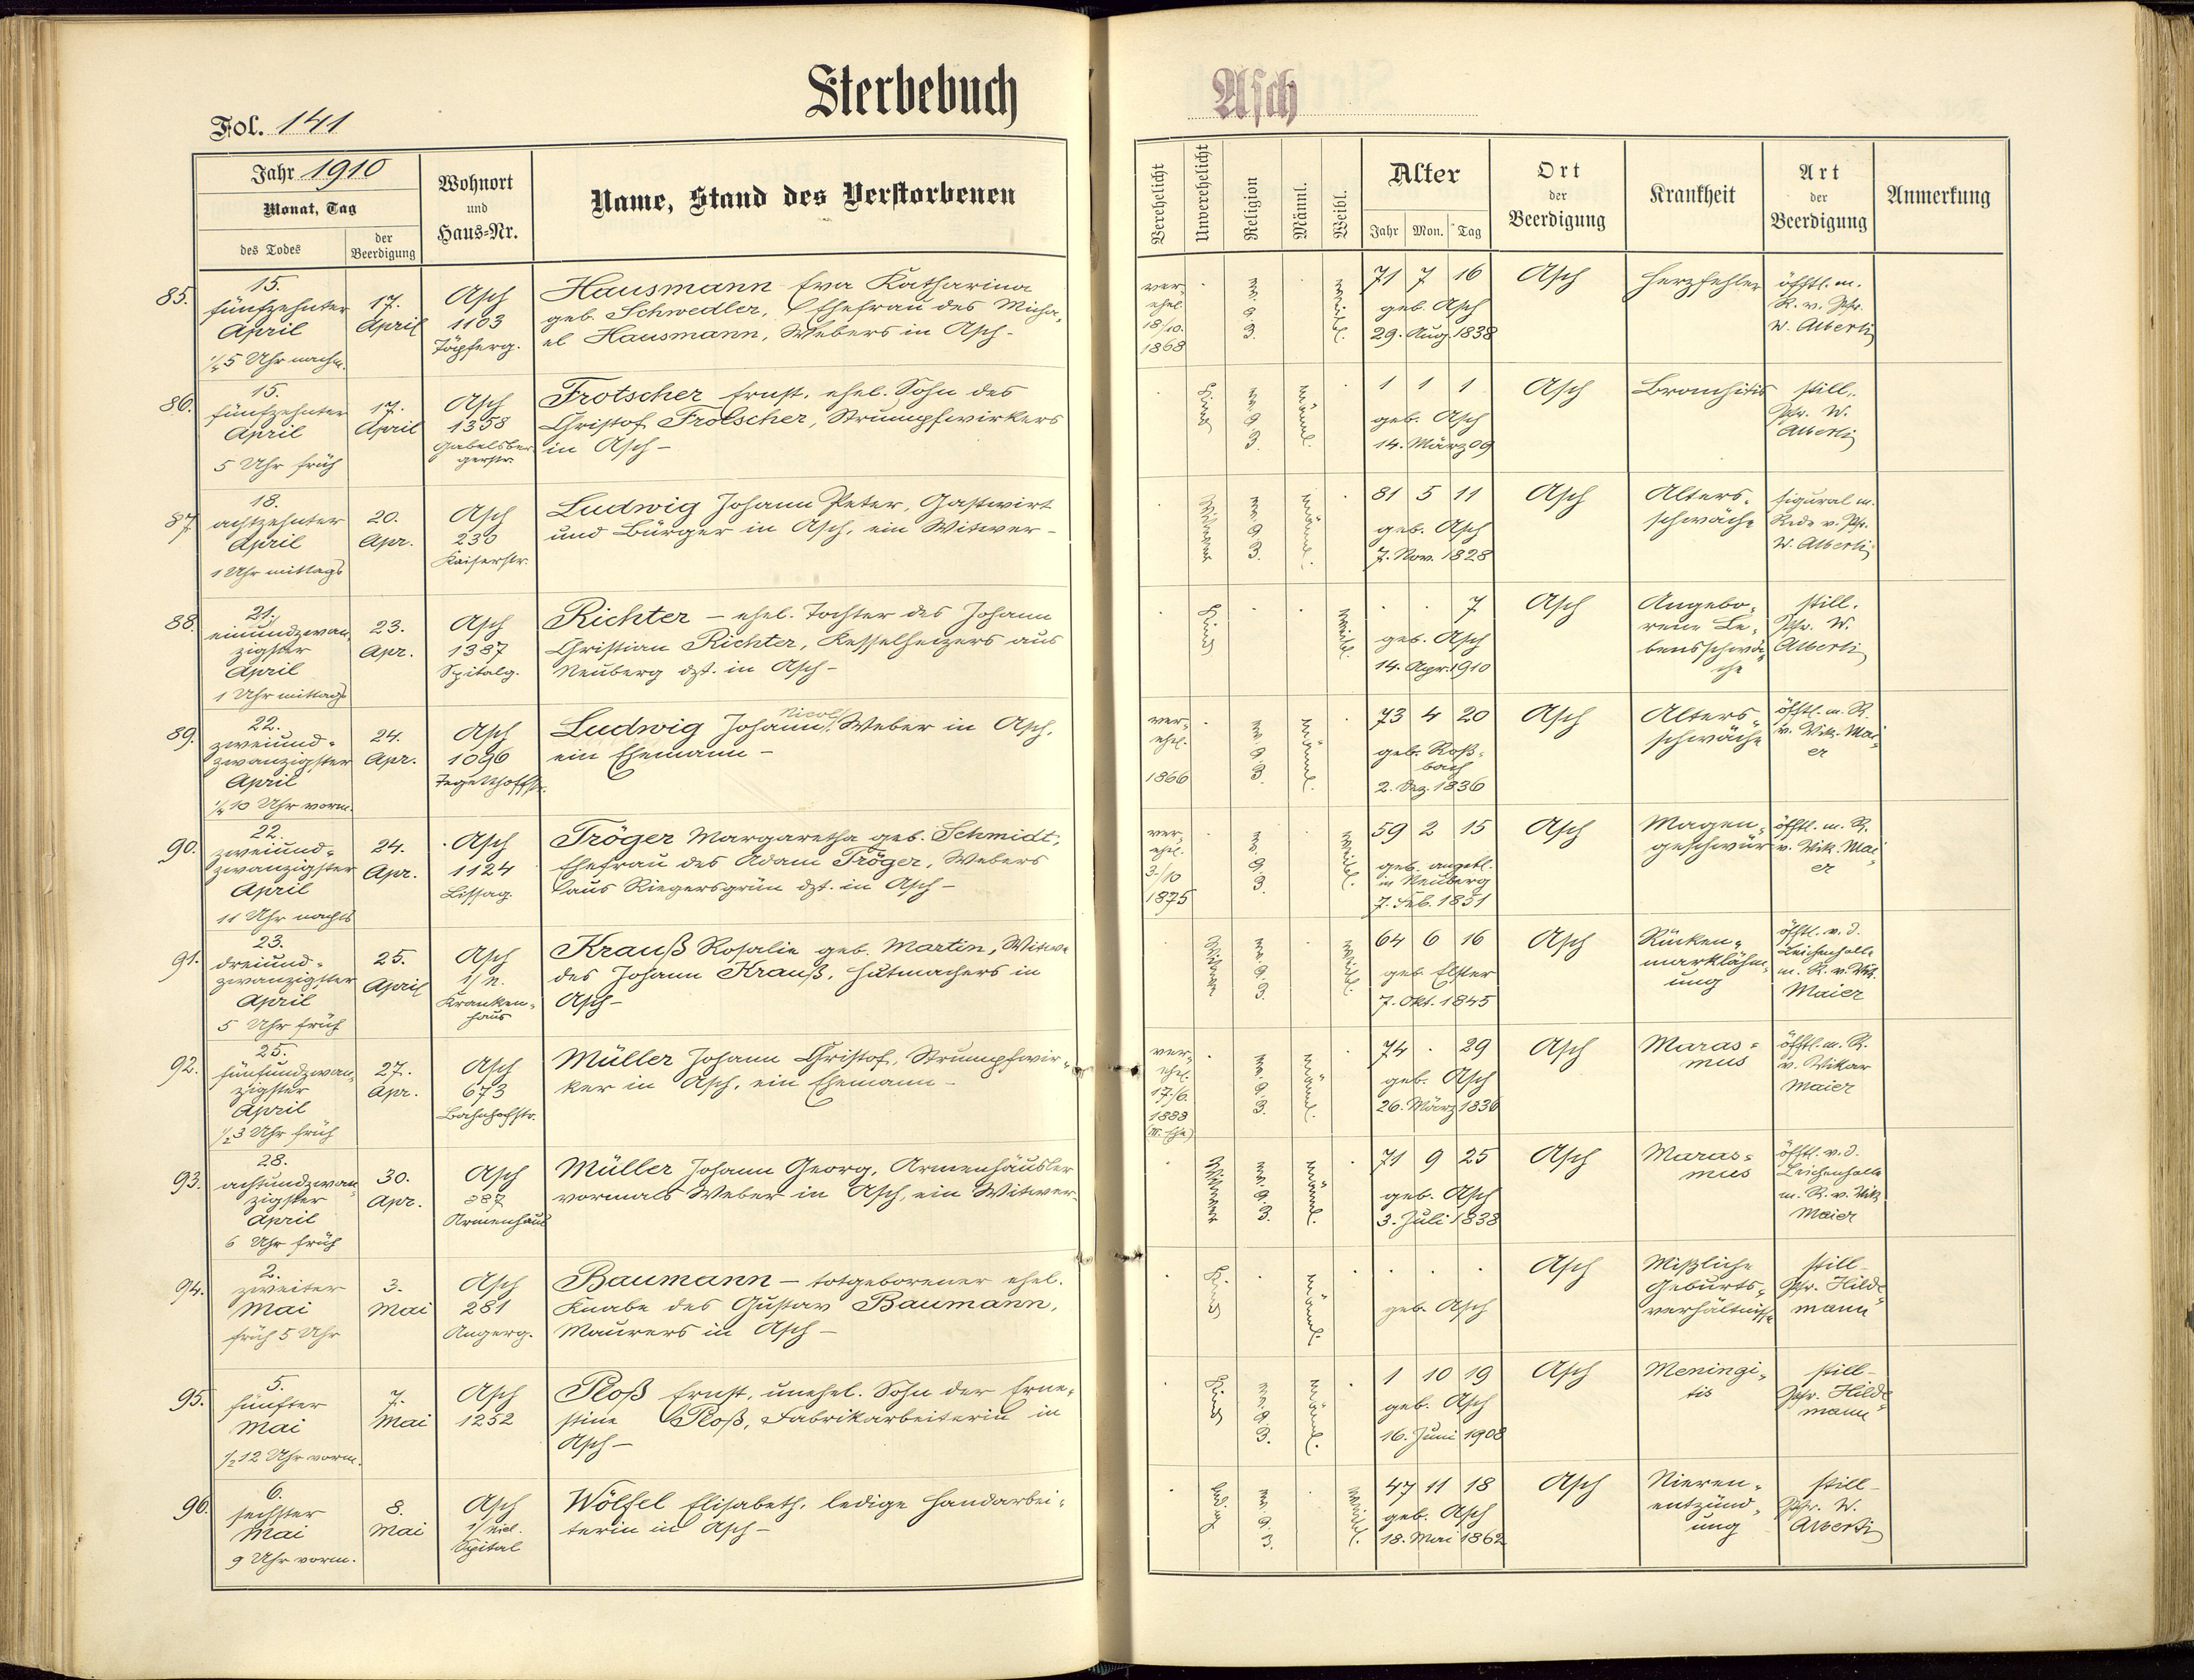 Sterbebuch
Asch
Fol. 141
Jahr 1910
Monat, Tag
des Todes
der Beerdigung
Wohnort und Haus=Nr.
Name, Stand des Verstorbenen
Verehelicht
Unverehelicht
Religion
Männl.
Weibl.
Alter
Jahr Mon. Tag
Ort der Beerdigung
Krankheit
Art der Beerdigung
Anmerkung
85.
15.
fünfzehnter
April
5 Uhr nachm.
17.
April
Asch
1103
Töpferg.
Hausmann Eva Katharina
geb. Schwedler, Ehefrau des Micha-
el Hausmann, Webers in Asch-
ver-
ehel.
18/10.
1868
ev. A. B.
weibl.
71 7 16
geb. Asch
29. Aug. 1838
Asch
Herzfehler
öfftl. m.
R. v. Pfr.
W. Alberti
86.
15.
fünfzehnter
April
5 Uhr früh
17.
April
Asch
1358
Gabelsber-
gerstr.
Frotscher Ernst, ehel. Sohn des
Christof Frotscher, Strumpfwirkers
in Asch-
Kind
ev. A. B.
männl.
1 1 1
geb. Asch
14. März 09
Asch
Bronchitis
still.
Pfr. W.
Alberti
87.
18.
achtzehnter
April
1 Uhr mittags
20.
Apr.
Asch
230
Kaiserstr.
Ludwig Johann Peter, Gastwirt
und Bürger in Asch, ein Witwer-
Witwer
ev. A. B.
männl.
81 5 11
geb. Asch
7. Nov. 1828
Asch
Alters-
schwäche
figural m.
Rede v. Pfr.
W. Alberti
88.
21.
einundzwan-
zigster
April
1 Uhr mittags
23.
Apr.
Asch
1387
Spitalg.
Richter - ehel. Tochter des Johann
Christian Richter, Kesselheizers aus
Neuberg dzt. in Asch-
Kind
weibl.
7
geb. Asch
14. Apr. 1910
Asch
Angebo-
rene Le-
bensschwä-
che
still.
Pfr. W.
Alberti
89.
22.
zweiund-
zwanzigster
April
10 Uhr vorm.
24.
Apr.
Asch
1096
Tegetthoffstr.
Nicol
Ludwig Johann, Weber in Asch,
ein Ehemann-
ver-
ehel.
1866
ev. A. B.
männl.
73 4 20
geb. Roß-
bach
2. Dez. 1836
Asch
Alters-
schwäche
öfftl. m. R.
v. Vik. Mai-
er
90.
22.
zweiund-
zwanzigster
April
11 Uhr nachts
24.
Apr.
Asch
1124
Lissag.
Tröger Margaretha geb. Schmidt,
Ehefrau des Adam Tröger, Webers
aus Riegersgrün dzt. in Asch-
ver-
ehel.
3./10
1875
ev. A. B.
weibl.
59 2 15
geb. angebl.
in Neuberg
7. Feb. 1851
Asch
Magen-
geschwür
öfftl. m. R.
v. Vik. Mai-
er
91.
23.
dreiund-
zwanzigster
April
5 Uhr früh
25.
April
Asch
1/n.
Kranken-
haus
Krauß Rosalie geb. Martin, Witwe
des Johann Krauß, Hutmachers in
Asch-
Witwe
ev. A. B.
weibl.
64 6 16
geb. Elster
7. Okt. 1845
Asch
Rücken-
marklähm-
ung
öfftl. v. d.
Leichenhalle
m. R. v. Vik.
Maier
92.
25.
fünfundzwan-
zigster
April
1/2 3 Uhr früh
27.
Apr.
Asch
673
Bahnhofstr.
Müller Johann Christof, Strumpfwir-
ker in Asch, ein Ehemann-
ver-
ehel.
17./6.
1888
ev. A. B.
männl.
74 . 29
geb. Asch
26. März 1836
Asch
Maras-
mus
öfftl. m. R.
v. Vikar
Maier
93.
28.
achtundzwan-
zigster
April
6 Uhr früh
30.
Apr.
Asch
387
Armenhaus
Müller Johann Georg, Armenhäusler
vormals Weber in Asch, ein Witwer-
Witwer
ev. A. B.
männl.
71 9 25
geb. Asch
3. Juli 1838
Asch
Maras-
mus
öfftl. v. d.
Leichenhalle
m. R. v. Vik.
Maier
94.
2.
zweiter
Mai
früh 5 Uhr
3.
Mai
Asch
281
Angerg.
Baumann - totgeborener ehel.
Knabe des Gustav Baumann,
Maurers in Asch-
Kind
männl.
geb. Asch
Asch
Mißliche
Geburts-
verhältnisse
still-
Pfr. Hilde-
mann
95.
5.
fünfter
Mai
1/2 12 Uhr vorm.
7.
Mai
Asch
1252
Ploß Ernst, unehel. Sohn der Erne-
stine Ploß, Fabrikarbeiterin in
Asch-
Kind
ev. A. B.
männl.
1 10 19
geb. Asch
16. Juni 1908
Asch
Meningi-
tis
still-
Pfr. Hilde-
mann
96.
6.
sechster
Mai
9 Uhr vorm.
8.
Mai
Asch
Spital
Wölfel Elisabeth, ledige Handarbei-
terin in Asch-
ledig
ev. A. B.
weibl.
47 11 18
geb. Asch
18. Mai 1862
Asch
Nieren-
entzünd-
ung
still-
Pfr. W.
Alberti